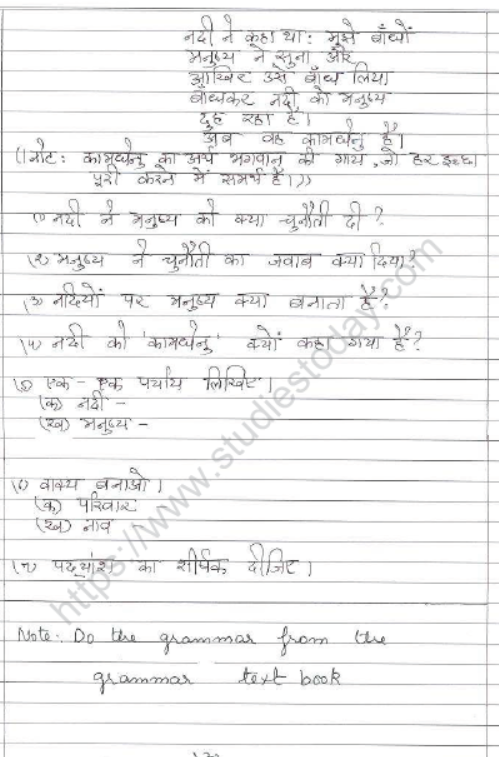 नदी ने कहा था: मुझे बाँधों
मनुष्य ने सुना और
आखिर उसे बाँध लिया
बाँधकर नदी को मनुष्य
दुह रहा है।
अब वह कामधेनु है।
((नोट: कामधेनु का अर्थ भगवान की गाय, जो हर इच्छा
पूरी करने में समर्थ है।))
(१) नदी ने मनुष्य को क्या चुनौती दी?
(२) मनुष्य ने चुनौती का जवाब क्या दिया?
(३) नदियों पर मनुष्य क्या बनाता है?
(४) नदी को 'कामधेनु' क्यों कहा गया है?
(५) एक-एक पर्याय लिखिए।
(क) नदी -
(ख) मनुष्य -
(६) वाक्य बनाओ।
(क) परिवार -
(ख) नाव -
(७) पद्यांश का शीर्षक दीजिए।
Note: Do the grammar from the
grammar text book
https://www.studiestoday.com